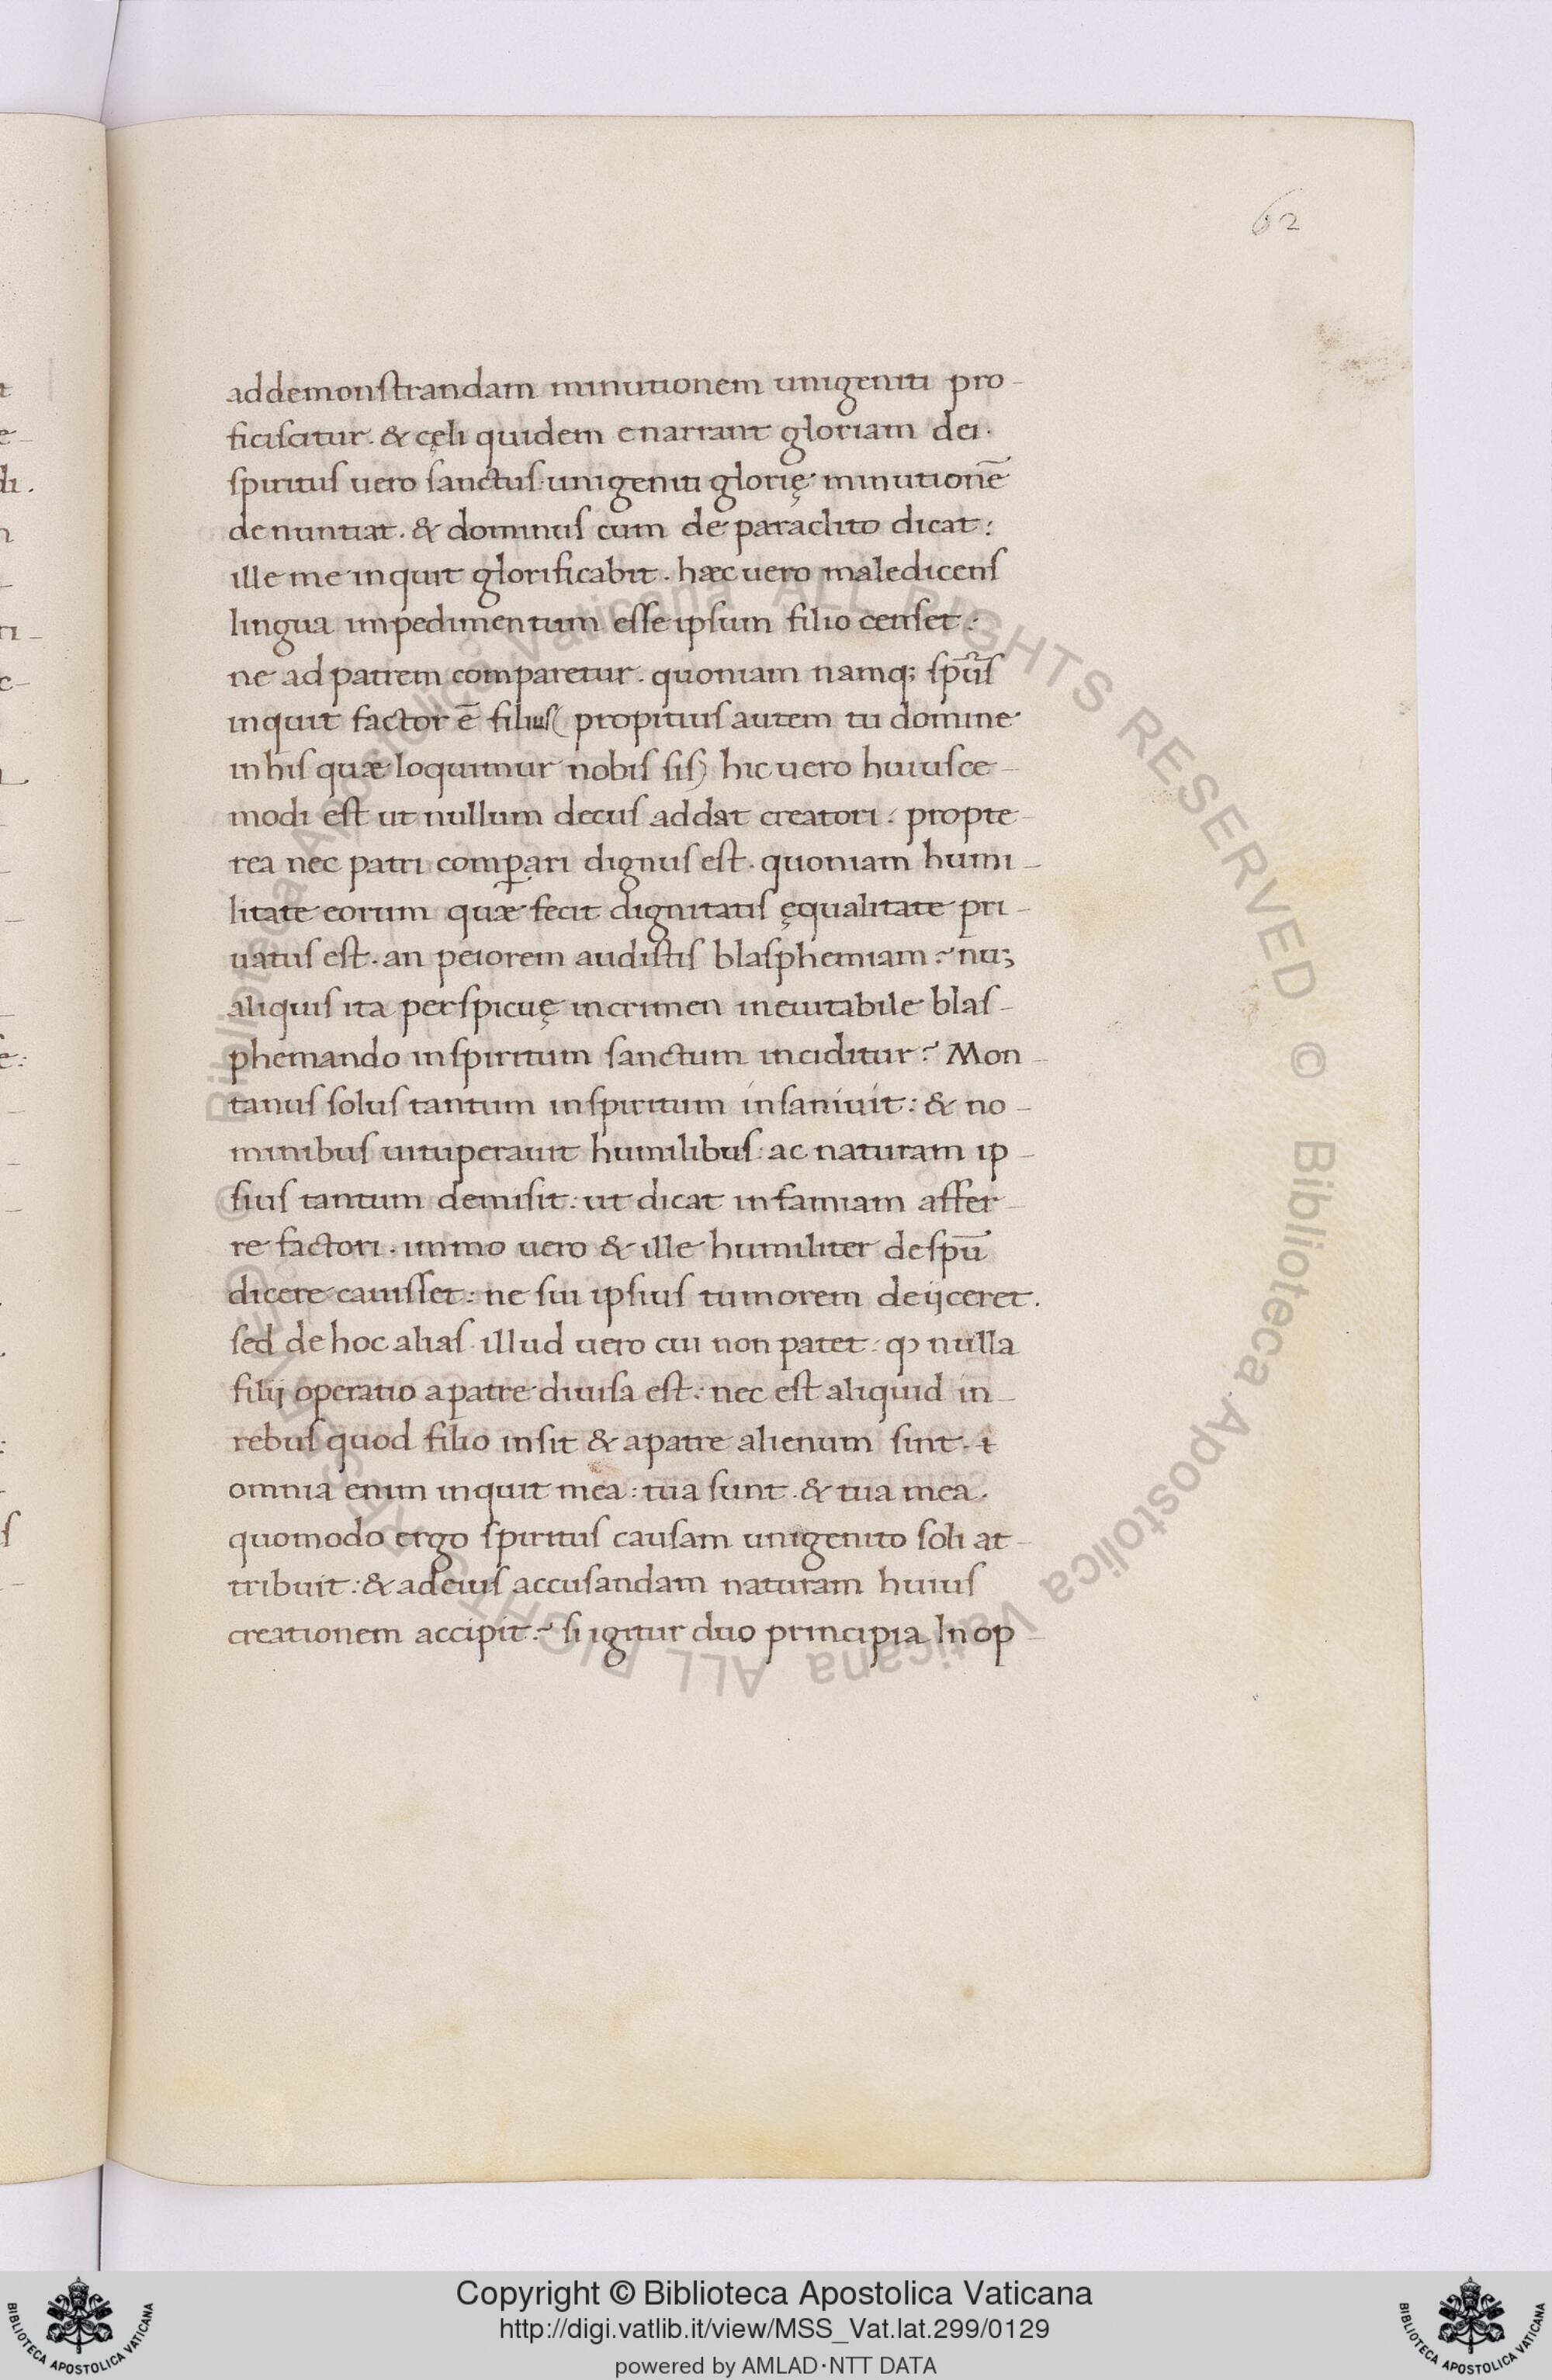 62
ad demonstrandam minutionem unigeniti pro-
ficiscitur. & cęli quidem enarrant gloriam dei.
spiritus uero sanctus unigeniti glorię minutionē
denuntiat. & dominus cum de paraclito dicat:
ille me inquit glorificabit. hæc uero maledicens
lingua impedimentum esse ipsum filio censet:
ne ad patrem comparetur. quoniam namq; spūs
inquit factor ē filius( propitius autem tu domine
in his quæ loquimur nobis sis) hic uero huiusce-
modi est ut nullum decus addat creatori: propte-
rea nec patri comꝑari dignus est. quoniam humi-
litate eorum quæ fecit dignitatis ęqualitate pri-
uatus est. an peiorem audistis blasphemiam? nu;
aliquis ita perspicuę in crimen ineuitabile blas-
phemando in spiritum sanctum inciditur? Mon-
tanus solus tantum in spiritum insaniuit: & no-
minibus uituperauit humilibus: ac naturam ip-
sius tantum demisit: ut dicat infamiam affer-
re factori. immo uero & ille humiliter de spū
dicere cauisset: ne sui ipsius tumorem deijceret.
sed de hoc alias. illud uero cui non patet: ꝙ nulla
filij operatio a patre diuisa est: nec est aliquid in-
rebus quod filio insit & a patre alienum sint. ɨ
omnia enim inquit mea: tua sunt. & tua mea.
quomodo ergo spiritus causam unigenito soli at-
tribuit: & ad eius accusandam naturam huius
creationem accipit? si igitur duo principia In op-
© Biblioteca Apostolica Vaticana ALL RIGHTS RESERVED © Biblioteca Apostolica Vaticana ALL RIGHTS RESERVED
Copyright © Biblioteca Apostolica Vaticana
http://digi.vatlib.it/view/MSS_Vat.lat.299/0129
powered by AMLAD·NTT DATA
BIBLIOTECA APOSTOLICA VATICANA
BIBLIOTECA APOSTOLICA VATICANA